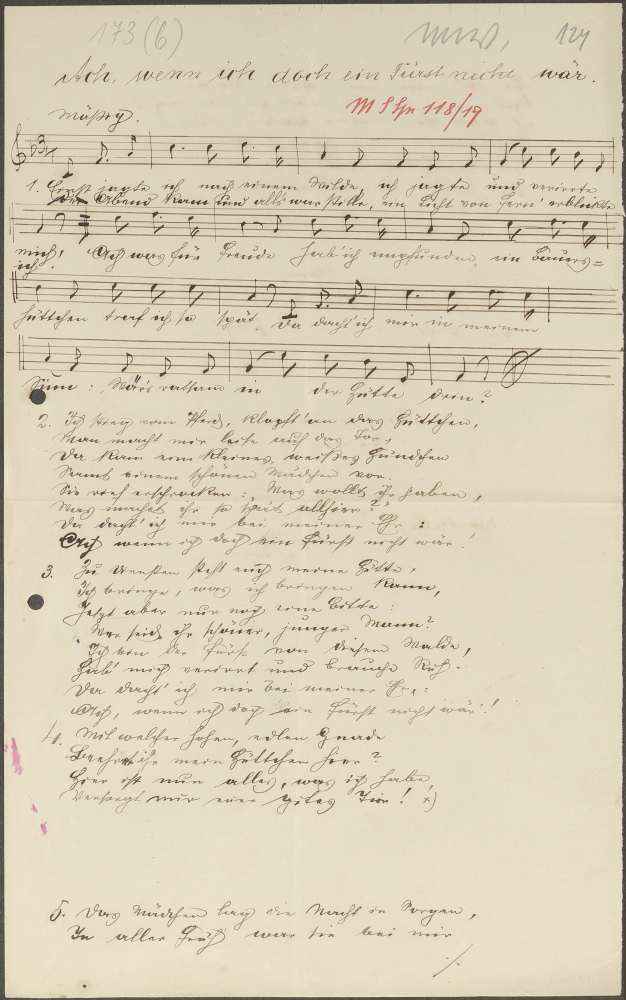 173 (6) 124
Ach, wenn ich doch ein Fürst nicht wär.
M S Gn 118/19
Mäßig.
1. Einst jagte ich nach einem Wilde, ich jagte und verirrte
Der Abend kam und all's war stille, ein Licht von fern' erblickte
mich, Ach was für Freude hab' ich empfunden, ein Bauers=
ich.
hüttchen traf ich so spät. Da dacht' ich mir in meinem
Sinn: Wär's ratsam in der Hütte drin?
2. Ich stieg vom Pferd, klopft' an das Hüttchen,
Man macht mir leise auf das Tor,
Da kam ein kleines, weißes Hündchen
Samt einem schönen Mädchen vor.
Sie rief erschrocken: "Was wollt ihr haben,
Was machet ihr so spät allhier?"
Da dacht' ich mir bei meiner Ehr:
Ach wenn ich doch ein Fürst nicht wär!
3. Zu Diensten steht euch meine Hütte,
Ich bringe, was ich bringen kann,
Jetzt aber nur noch eine Bitte:
Wer seid ihr schöner, junger Mann?
Ich bin der Fürst von diesem Walde,
Hab' mich verirrt und brauche Ruh.
Da dacht' ich mir bei meiner Ehr:
Ach, wenn ich doch ein Fürst nicht wär'!
4. Mit welcher hohen, edlen Gnade
Beehrt ihr mein Hüttchen hier?
Hier ist nun alles, was ich habe,
Versorgt mir euer gutes Tier! x)
5. Das Mädchen lag die Nacht in Sorgen,
In aller Früh war sie bei mir
./.